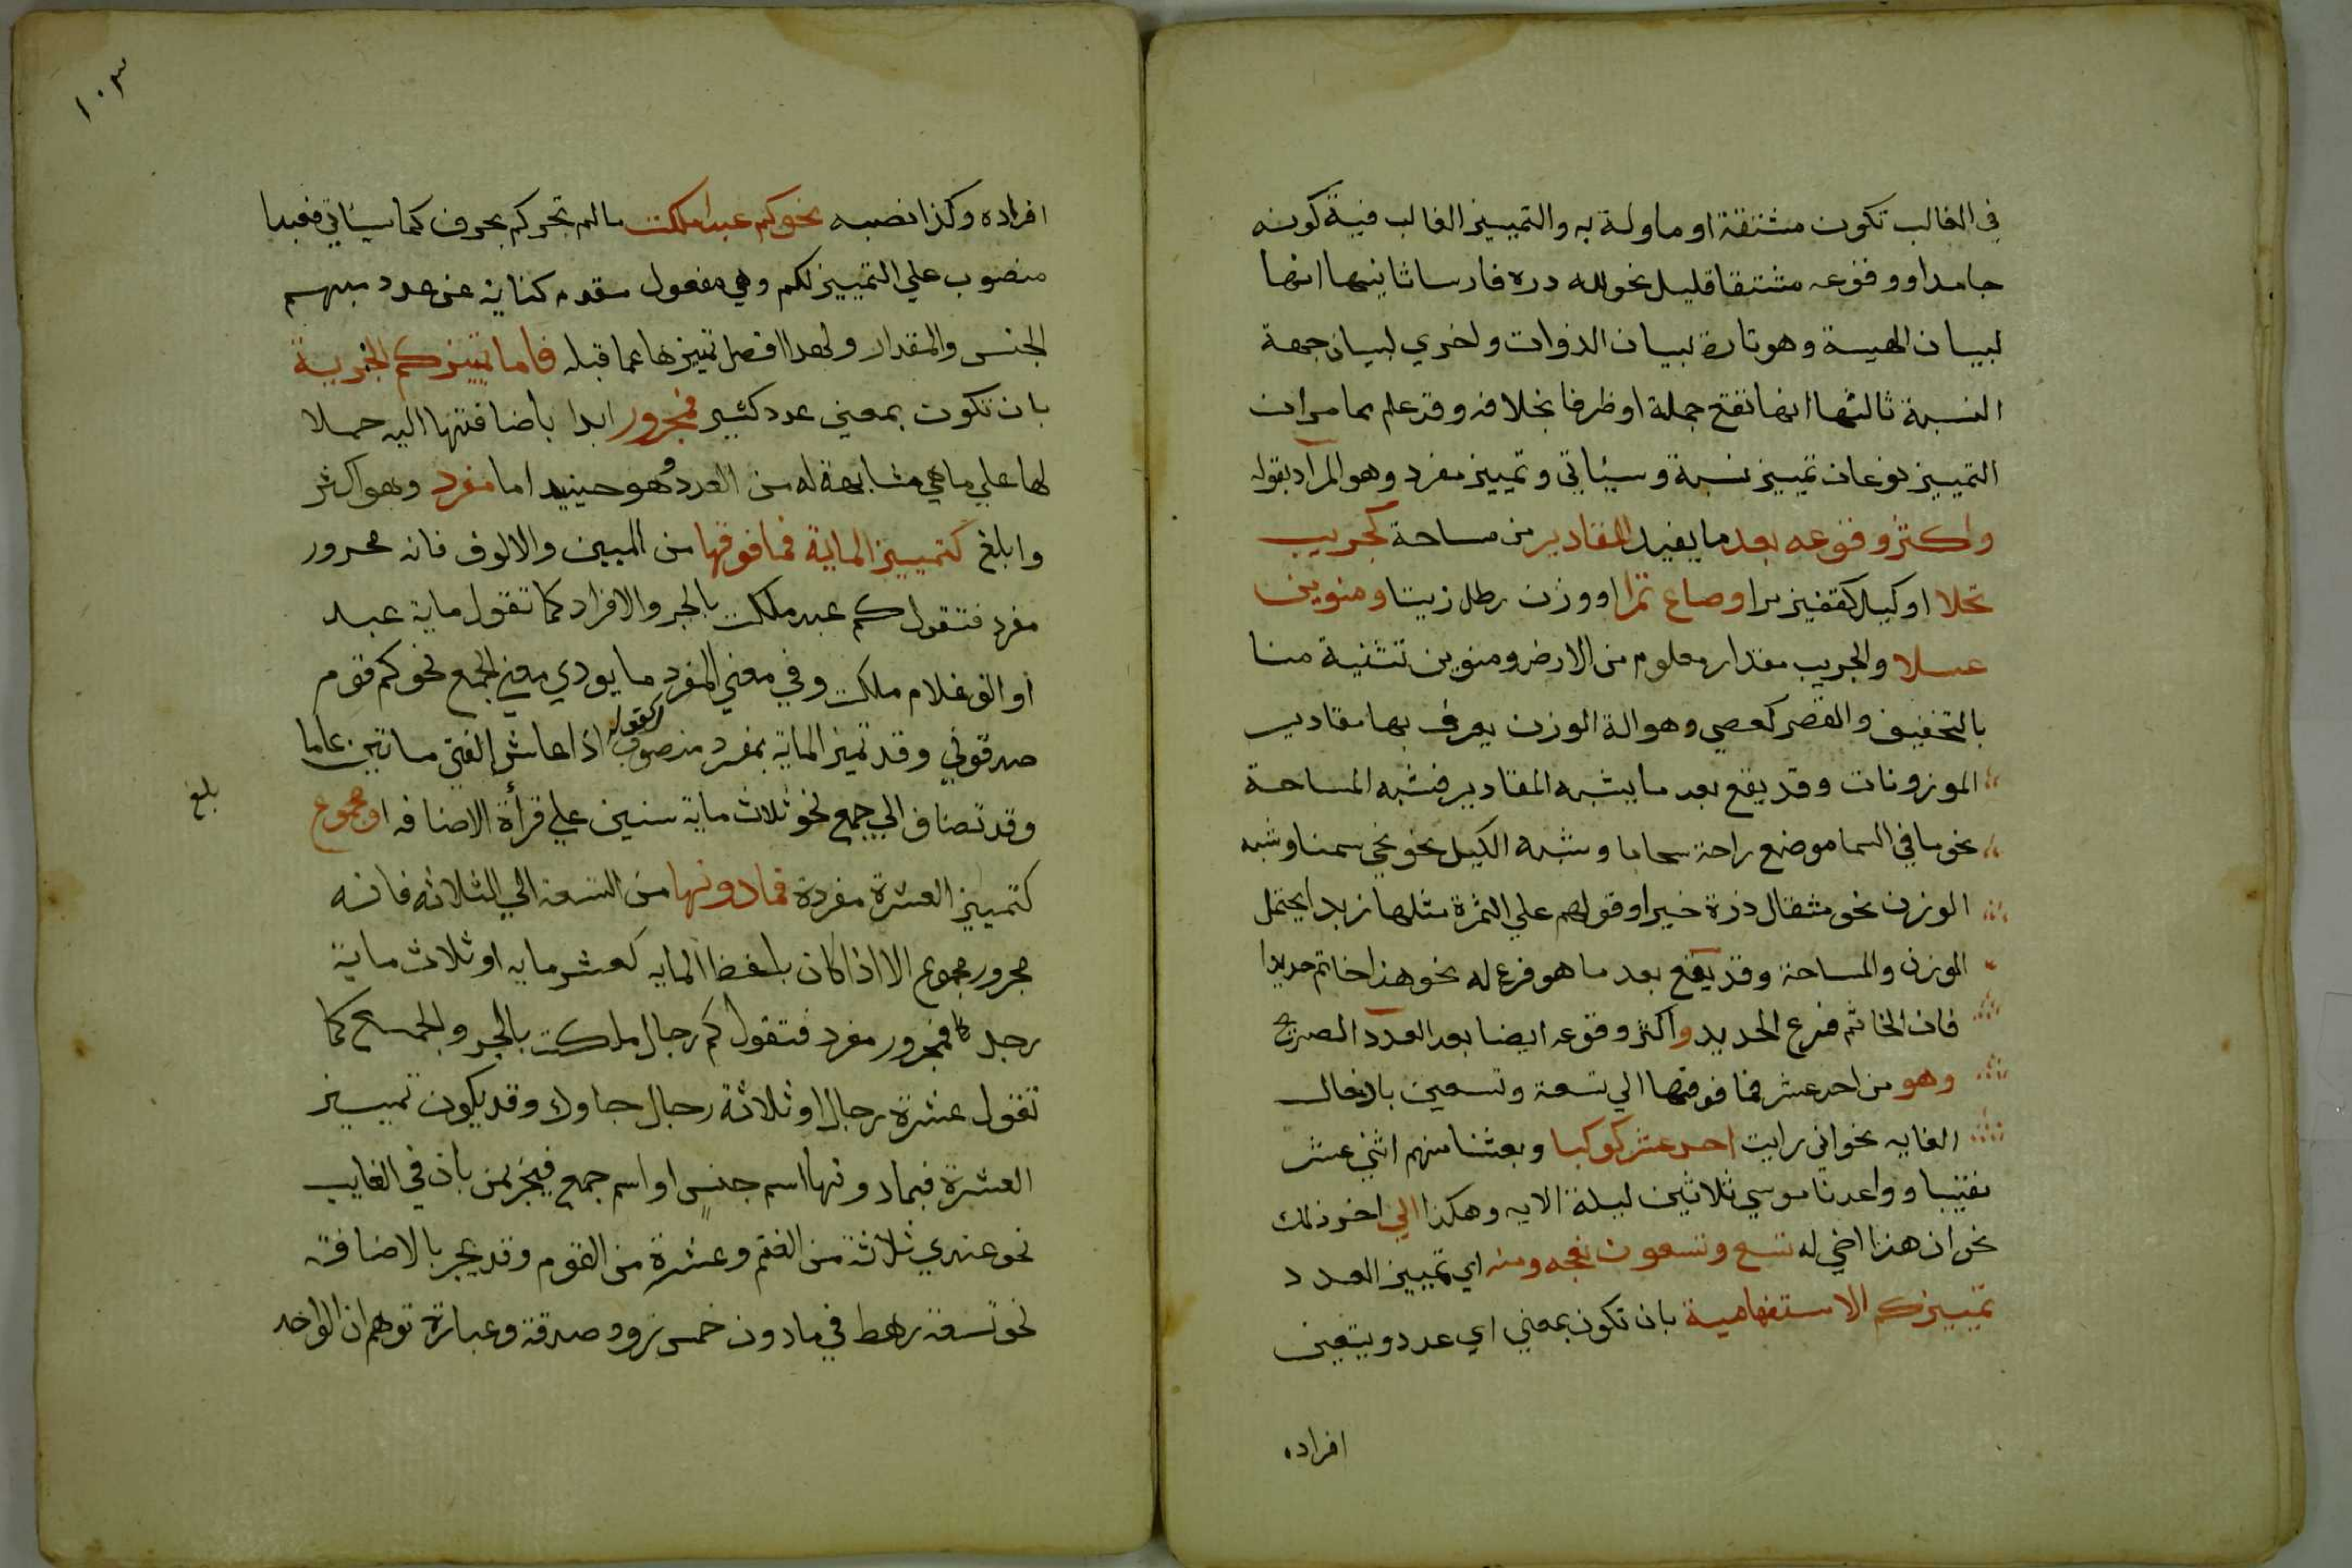 في الغالب تكون مشتقة او ماولة به والتمييز الغالب فيه كونه
جامدا ووقوعه مشتقا قليل نحو لله دره فارسا ثانيها انها
لبيان الهيية وهو تارة لبيان الذوات واخري لبيان جهة
النسبة ثالثها انها تقع جملة او ظرفا بخلافه وقد علم مما مر ان
التمييز نوعان تمييز نسبة وسيئاتي وتمييز مفرد وهو المراد بقوله
واكثر وقوعه بعد ما يفيد المقادير من مساحة كجريب
نخلا او كيل كقفيز برا وصاع تمرا او وزن رطل زيتا ومنوين
عسلا والجريب مقدار معلوم من الارض ومنوين تثنية منا
بالتخفيف والقصر كعصي وهو الة الوزن يعرف بها مقادير
الموزونات وقد يقع بعد ما يشبه المقادير فشبه المساحة
نحو ما في السما موضع راحة سحابا وشبه الكيل نحو نحي سمنا وشبه
الوزن نحو مثقال ذرة خيرا وقولهم علي الثمرة مثلها زبدا يحتمل
الوزن والمساحة وقد يقع بعد ما هو فرع له نحو هذا خاتم حديدا
فان الخاتم فرع الحديد واكثر وقوعه ايضا بعد العدد الصريح
وهو من احد عشر فما فوقها الي تسعة وتسعين بادخال
الغايه نحو اني رايت احد عشر كوكبا وبعثنا منهم اثني عشر
نقيبا وواعدنا موسي ثلاثين ليلة الايه وهكذا الي اخر ذلك
نحو ان هذا اخي له تسع وتسعون نعجه ومنه اي تمييز العدد
تمييز كم الاستفهامية بان تكون بمعني اي عدد ويتعين
افراده
١٠٣
افراده وكذا نصبه نحو كم عبدا ملكت ما لم تجر كم بحرف كما سيئاتي فعبدا
منصوب علي التمييز لكم وهي مفعول مقدم كناية عن عدد مبهم
الجنس والمقدار ولهذا افصل تمييزها عما قبله فاما تمييز كم الخبرية
بان تكون بمعني عدد كثير فمجرور ابدا باضافتها اليه حملا
لها علي ما هي مشابهة له من العدد وهو حينيد اما مفرد وهو اكثر
وابلغ كتمييز الماية فما فوقها من الميين والالوف فانه مجرور
مفرد فتقول كم عبد ملكت بالجر والافراد كما تقول ماية عبد
او الف غلام ملكت وفي معني المفرد ما يودي معني الجمع نحو كم قوم
صدقوني وقد تميز الماية بمفرد منصوب كقوله اذا عاش الفتي ماتين عاما
وقد تضاف الي جمع نحو ثلاث ماية سنين علي قرأة الاضافه او مجموع
بلغ
كتمييز العشرة مفردة فما دونها من التسعة الي الثلاثه فانه
مجرور مجموع الا اذا كان بلفظ المايه كعشر مايه او ثلاث ماية
رجل فمجرور مفرد فتقول كم رجال ملكت بالجر والجمع كما
تقول عشرة رجال او ثلاثة رجال جاوك وقد يكون تمييز
العشرة فيما دونها اسم جنس او اسم جمع فيجر بمن بان في الغايب
نحو عندي ثلاثة من الغنم وعشرة من القوم وقد يجر بالاضافة
نحو تسعة رهط في ما دون خمس ذود صدقة وعبارة توهم ان الواحد